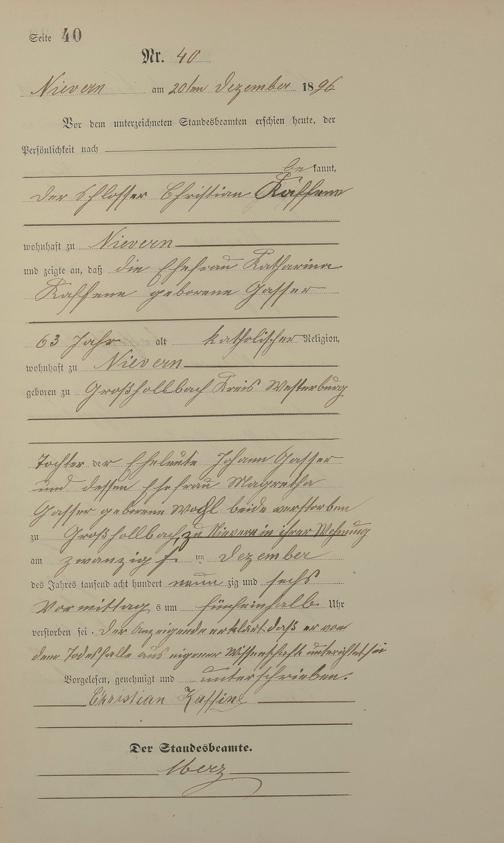 Seite 40
Nr. 40
Nievern am 20ten Dezember 1896
Vor dem unterzeichneten Standesbeamten erschien heute, der
Persönlichkeit nach
be kannt,
der Schlosser Christian
wohnhaft zu Nievern
und zeigte an, daß die Ehefrau Katharina
geborene Gasser
63 Jahr alt katholischer Religion,
wohnhaft zu Nievern
geboren zu Großhollbach Kreis Westerburg
Tochter der Eheleute Johann Gasser
und dessen Ehefrau Magretha
Gasser geborene beide verstorben
zu Großhollbach zu Nievern in ihrer Wohnung
am zwanzigsten Dezember
des Jahres tausend acht hundert neun zig und sechs
Vormittags um fünfeinhalb Uhr
verstorben sei. Der Anzeigende erklärt daß er von
dem Todesfalle aus eigener Wissenschaft unterichtet sei
Vorgelesen, genehmigt und unterschrieben.
Christian
Der Standesbeamte.
Merz